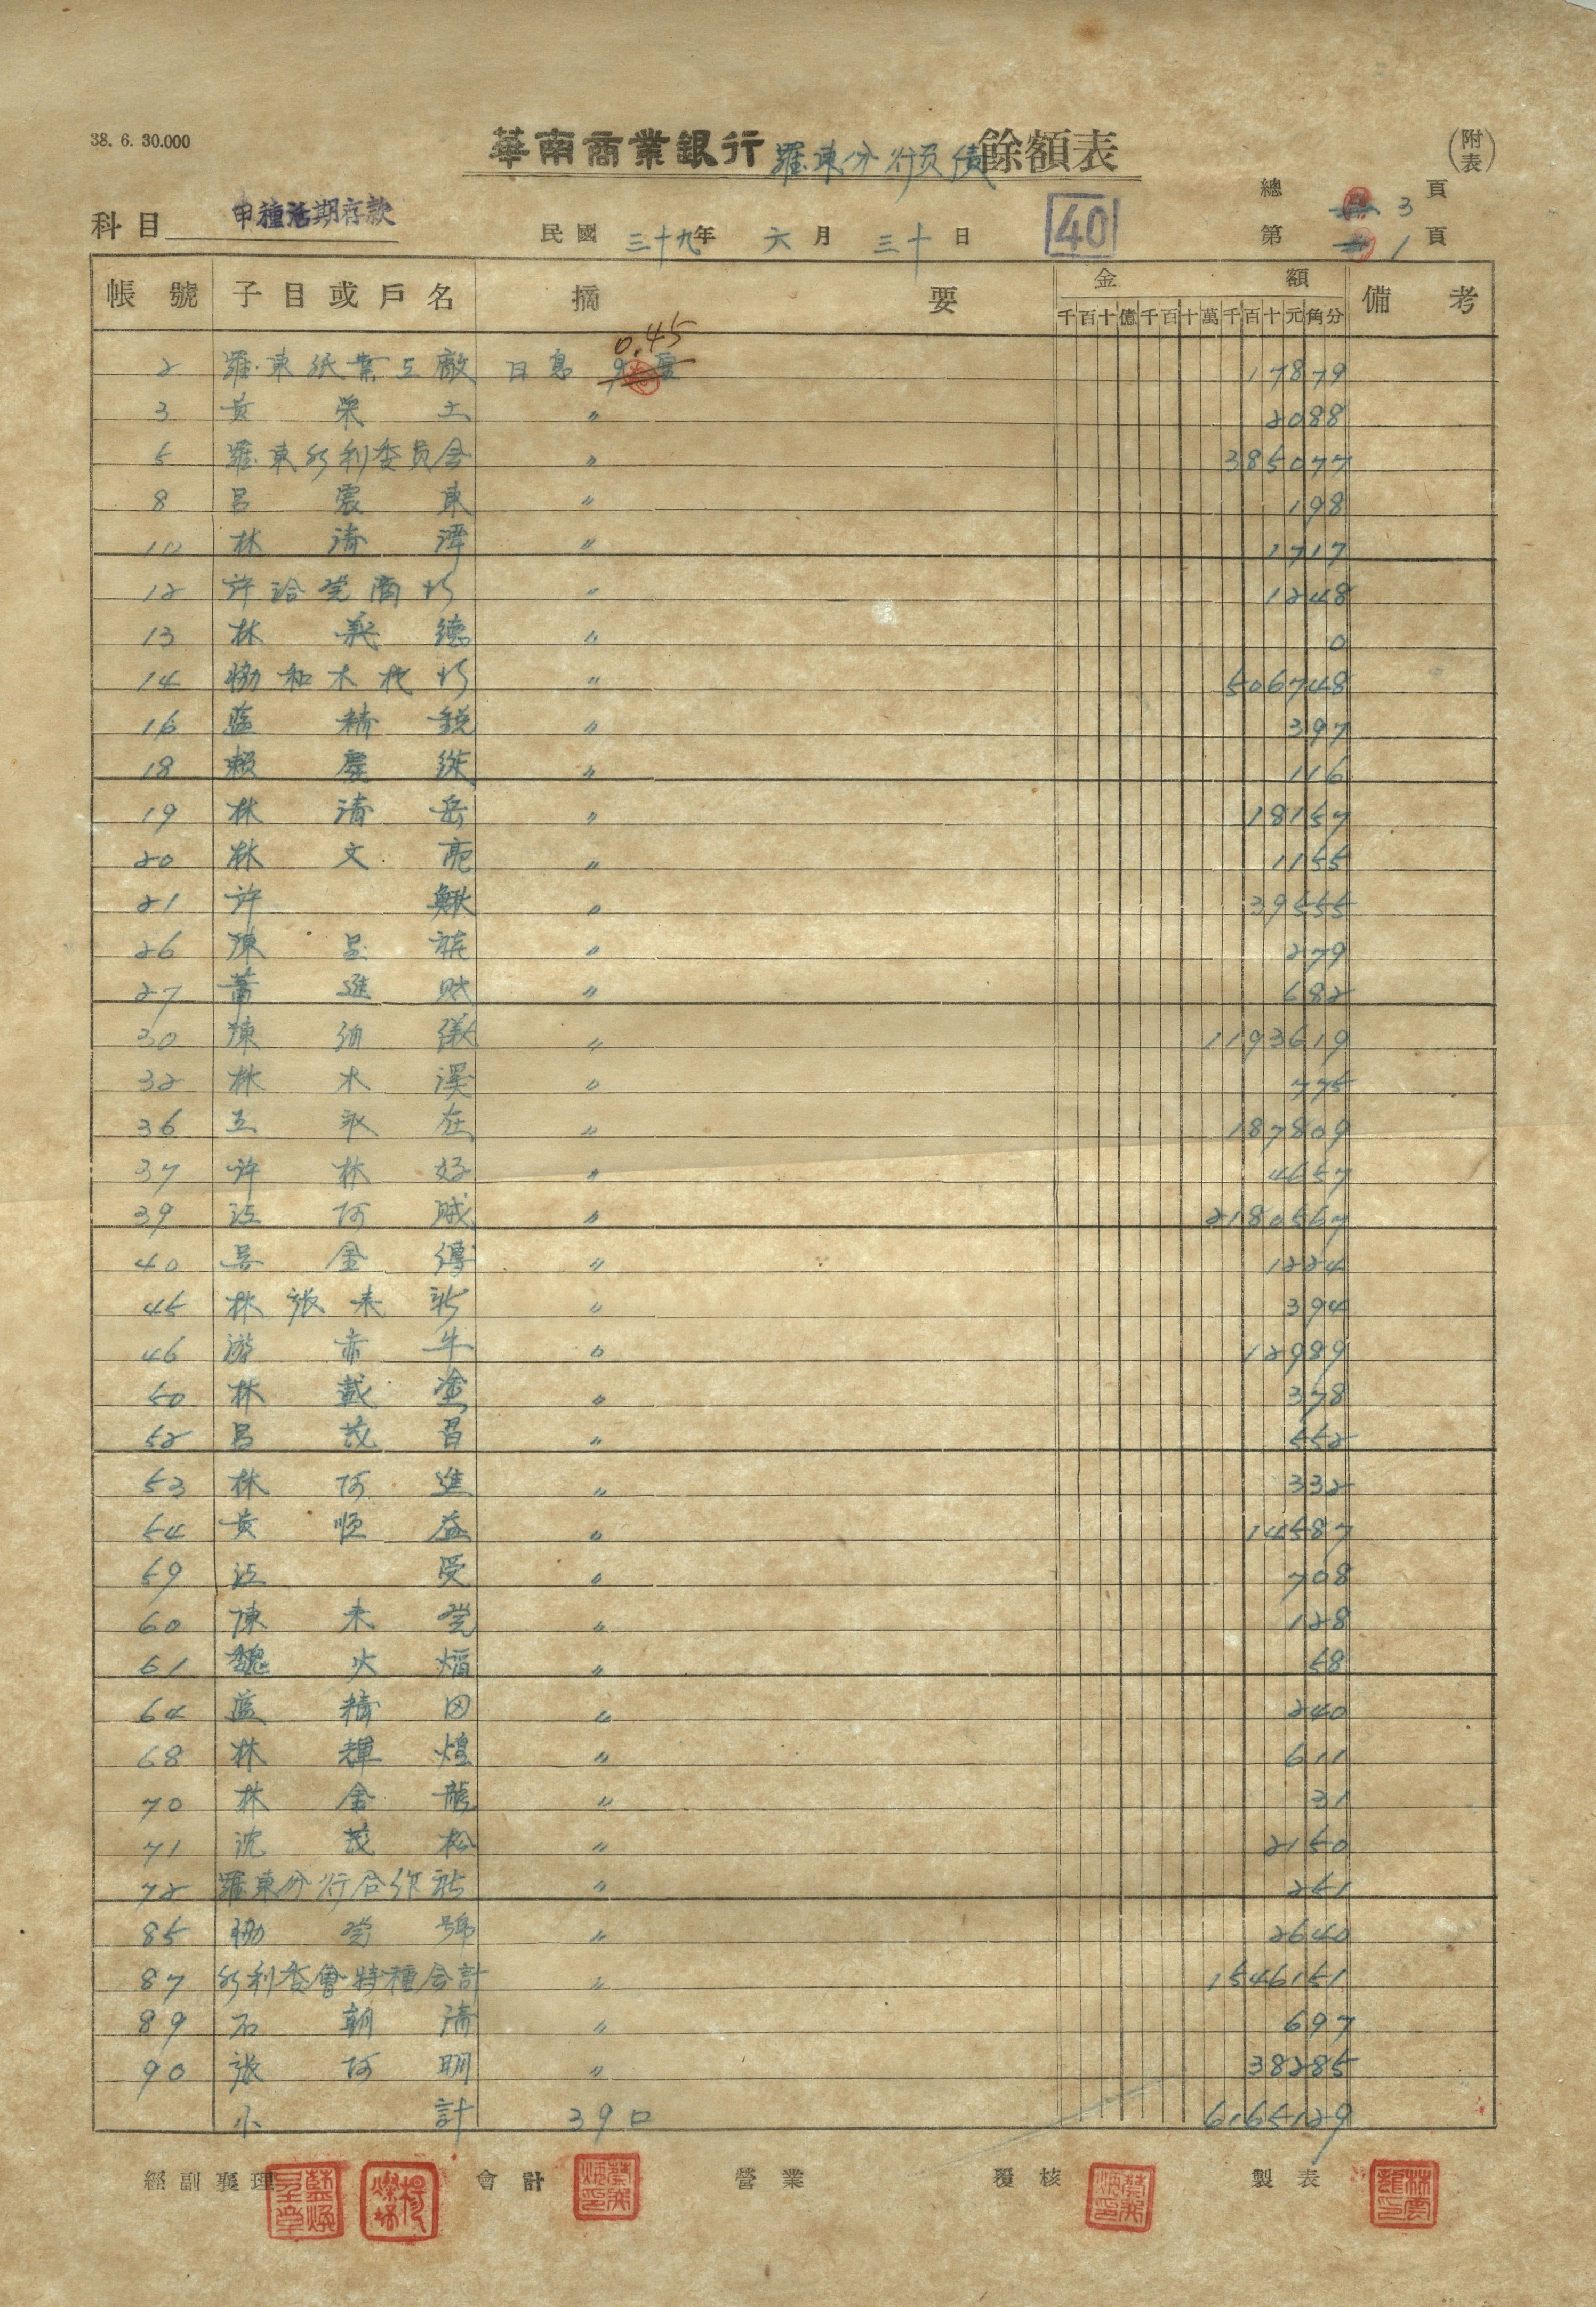 38. 6. 30.000
華南商業銀行羅東分行負債餘額表
(附表)
科目 甲種活期存款
民國三十九年六月三十日
40
總 3 頁
第 1 頁
帳號 子目或戶名 摘要 金額 備考
千百十億千百十萬千百十元角分
2 羅東紙業工廠 日息 0.45 17879
3 黃荣土 〃 2088
5 羅東水利委員会 〃 385077
8 呂震東 〃 198
10 林清潭 〃 1717
12 許洽兴商行 〃 1248
13 林義德 〃 0
14 協和木材行 〃 506748
16 藍精鋭 〃 397
18 賴慶 〃 116
19 林清岳 〃 18157
20 林文亮 〃 1155
21 許鰍 〃 39555
26 陳 〃 279
27 進財 〃 682
30 陳 〃 1193619
32 林木溪 〃 775
36 王永在 〃 187809
37 許林好 〃 4657
39 江阿賊 〃 2180567
40 吳金 〃 1224
45 林張 〃 394
46 游赤牛 〃 12989
50 林戴塗 〃 378
52 呂茂昌 〃 552
53 林阿進 〃 332
54 黃順益 〃 14587
59 江受 〃 708
60 陳 〃 128
61 魏火 〃 58
64 藍精 〃 240
68 林輝煌 〃 611
70 林金龍 〃 31
71 沈茂松 〃 2150
72 羅東分行合作社 〃 251
85 協兴號 〃 2640
87 水利委會特種会計 〃 1546151
89 石朝清 〃 697
90 張阿明 〃 38285
小計 39口 6165129
經副襄理 會計 營業 覆核 製表